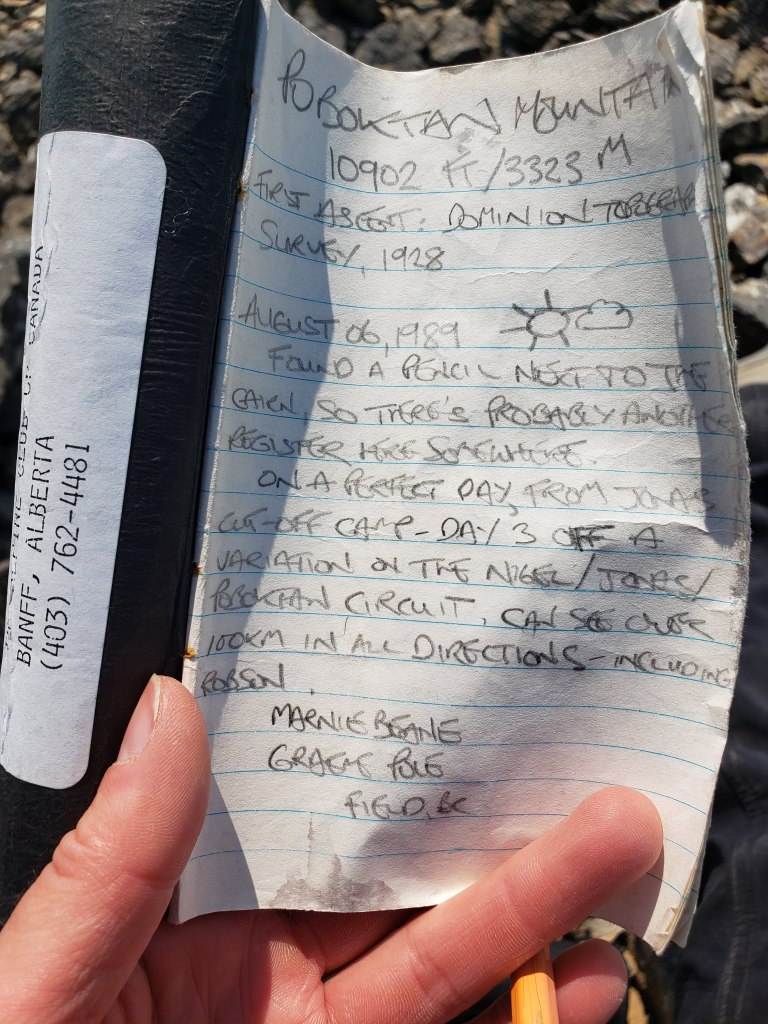 POBOKTAN MOUNTAIN
10902 FT/3323 M
FIRST ASCENT: DOMINION TOPOGRAP
SURVEY, 1928
AUGUST 06, 1989
FOUND A PENCIL NEXT TO THE
CAIRN, SO THERE'S PROBABLY ANOTHER
REGISTER HERE SOMEWHERE.
ON A PERFECT DAY, FROM JONAS
CUT-OFF CAMP - DAY 3 OFF A
VARIATION ON THE NIGEL/JONAS/
POBOKTAN CIRCUIT. CAN SEE OVER
100KM IN ALL DIRECTIONS - INCLUDING
ROBSON.
MARNIE BEANE
GRAEME POLE
FIELD, BC
ALPINE CLUB OF CANADA
BANFF, ALBERTA
(403) 762-4481